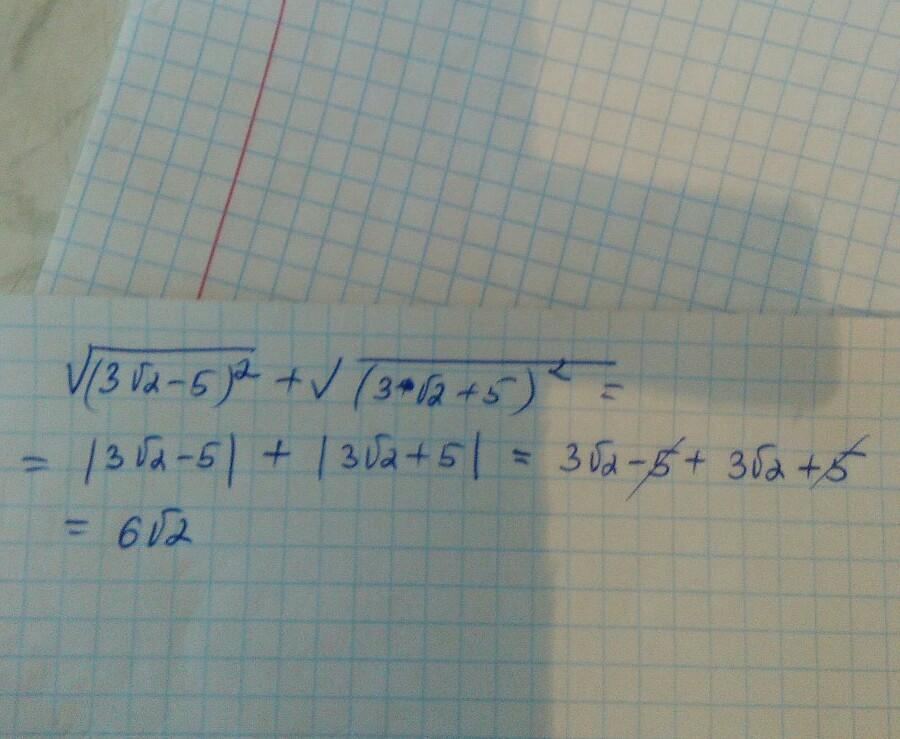 √(3√2-5)² + √(3√2+5)² =
= |3√2-5| + |3√2+5| = 3√2-5+ 3√2+5
= 6√2